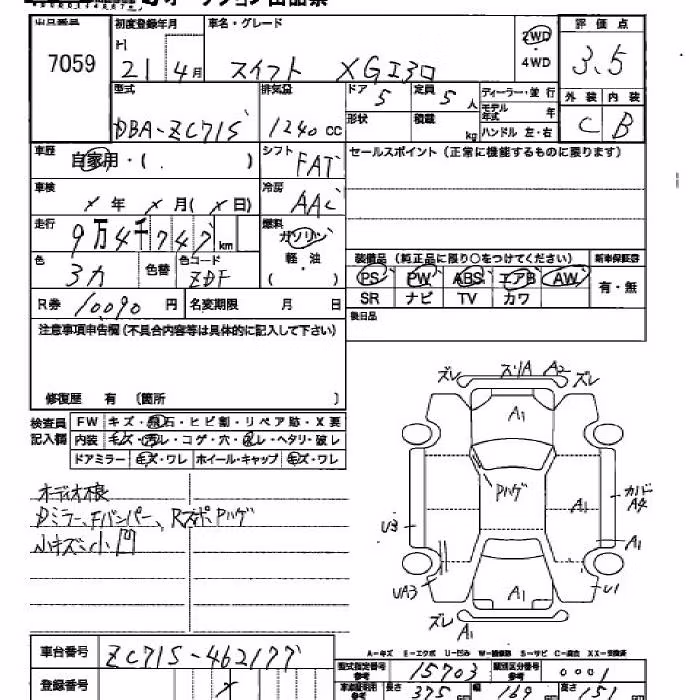 出品番号 初度登録年月 車名・グレード 評価点
7059 H 21 4月 スイフト XGエアロ 2WD ・ 4WD 3.5
型式 排気量 ドア 5 定員 5人 ディーラー・並行 外装 内装
DBA-ZC71S 1240 CC 形状 積載 kg モデル年式 年 ハンドル 左・右 C B
車歴 自家用・( ) シフト FAT セールスポイント(正常に機能するものに限ります)
車検 年 月( 日) 冷房 AAC
走行 9万4千747 km 燃料 ガソリン 軽・油 ( )
色 色替 色コード ZDF
装備品(純正品に限り○をつけてください) 新車保証書
PS PW ABS エアB AW 有・無
SR ナビ TV カワ
R券 10090 円 名変期限 月 日
後日品
注意事項申告欄(不具合内容等は具体的に記入して下さい)
修復歴 有 〔箇所 〕
検査員記入欄 FW キズ・飛石・ヒビ割・リペア跡・X要
内装 キズ・汚レ・コゲ・穴・ヘタリ・破レ
ドアミラー キズ・ワレ ホイール・キャップ キズ・ワレ
オーディオ
Dミラー、Fバンパー、
小キズ 小凹
ズレ A2 ズレ
A1
Pハゲ
U3 A1 A4
A1
UA3 A1 U1
ズレ A1
A-キズ E-エクボ U-凹み S-サビ
車台番号 ZC71S-462177
登録番号
型式指定番号 参考 15703 類別区分番号 参考 0001
長さ 375 幅 169 高さ 151